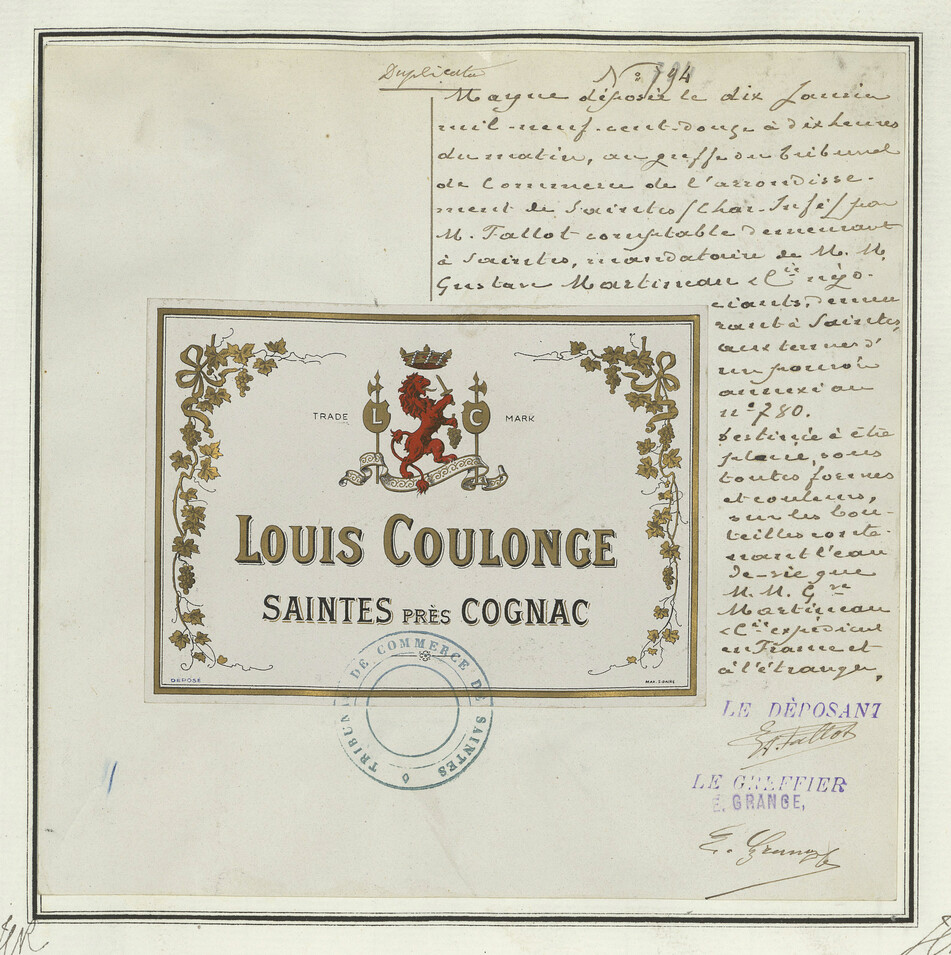 Duplicata
N° 794
Marque déposée le dix Janvier
mil-neuf-cent-douze à dix heures
du matin, au greffe du Tribunal
de Commerce de l'arrondisse-
ment de Saintes (Char-Infé) par
M. Tallot comptable demeurant
à Saintes, mandataire de M. M.
Gustave Martineau & Cie négo-
ciants, demeu
rant à Saintes,
aux termes d'
un pouvoir
annexé au
n° 780.
Destinée à être
placée, sous
toutes formes
et couleurs,
sur les bou-
teilles conte-
nant l'eau
de-vie que
M. M. Gve
Martineau
& Cie expédient
en France et
à l'étranger.
TRADE L C MARK
LOUIS COULONGE
SAINTES PRÈS COGNAC
DÉPOSÉ
TRIBUNAL DE COMMERCE DE SAINTES
LE DÈPOSANT
Tallot
LE GREFFIER
E. GRANGE,
E. Grange